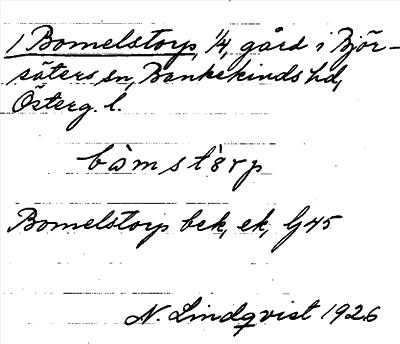 1 Bomelstorp, 1/4, gård i Björ-
säters sn, Bankekinds hd,
Österg. l.
bòmstɔ̀rp
Bomelstorp bek, ek, G 45
N. Lindqvist 1926